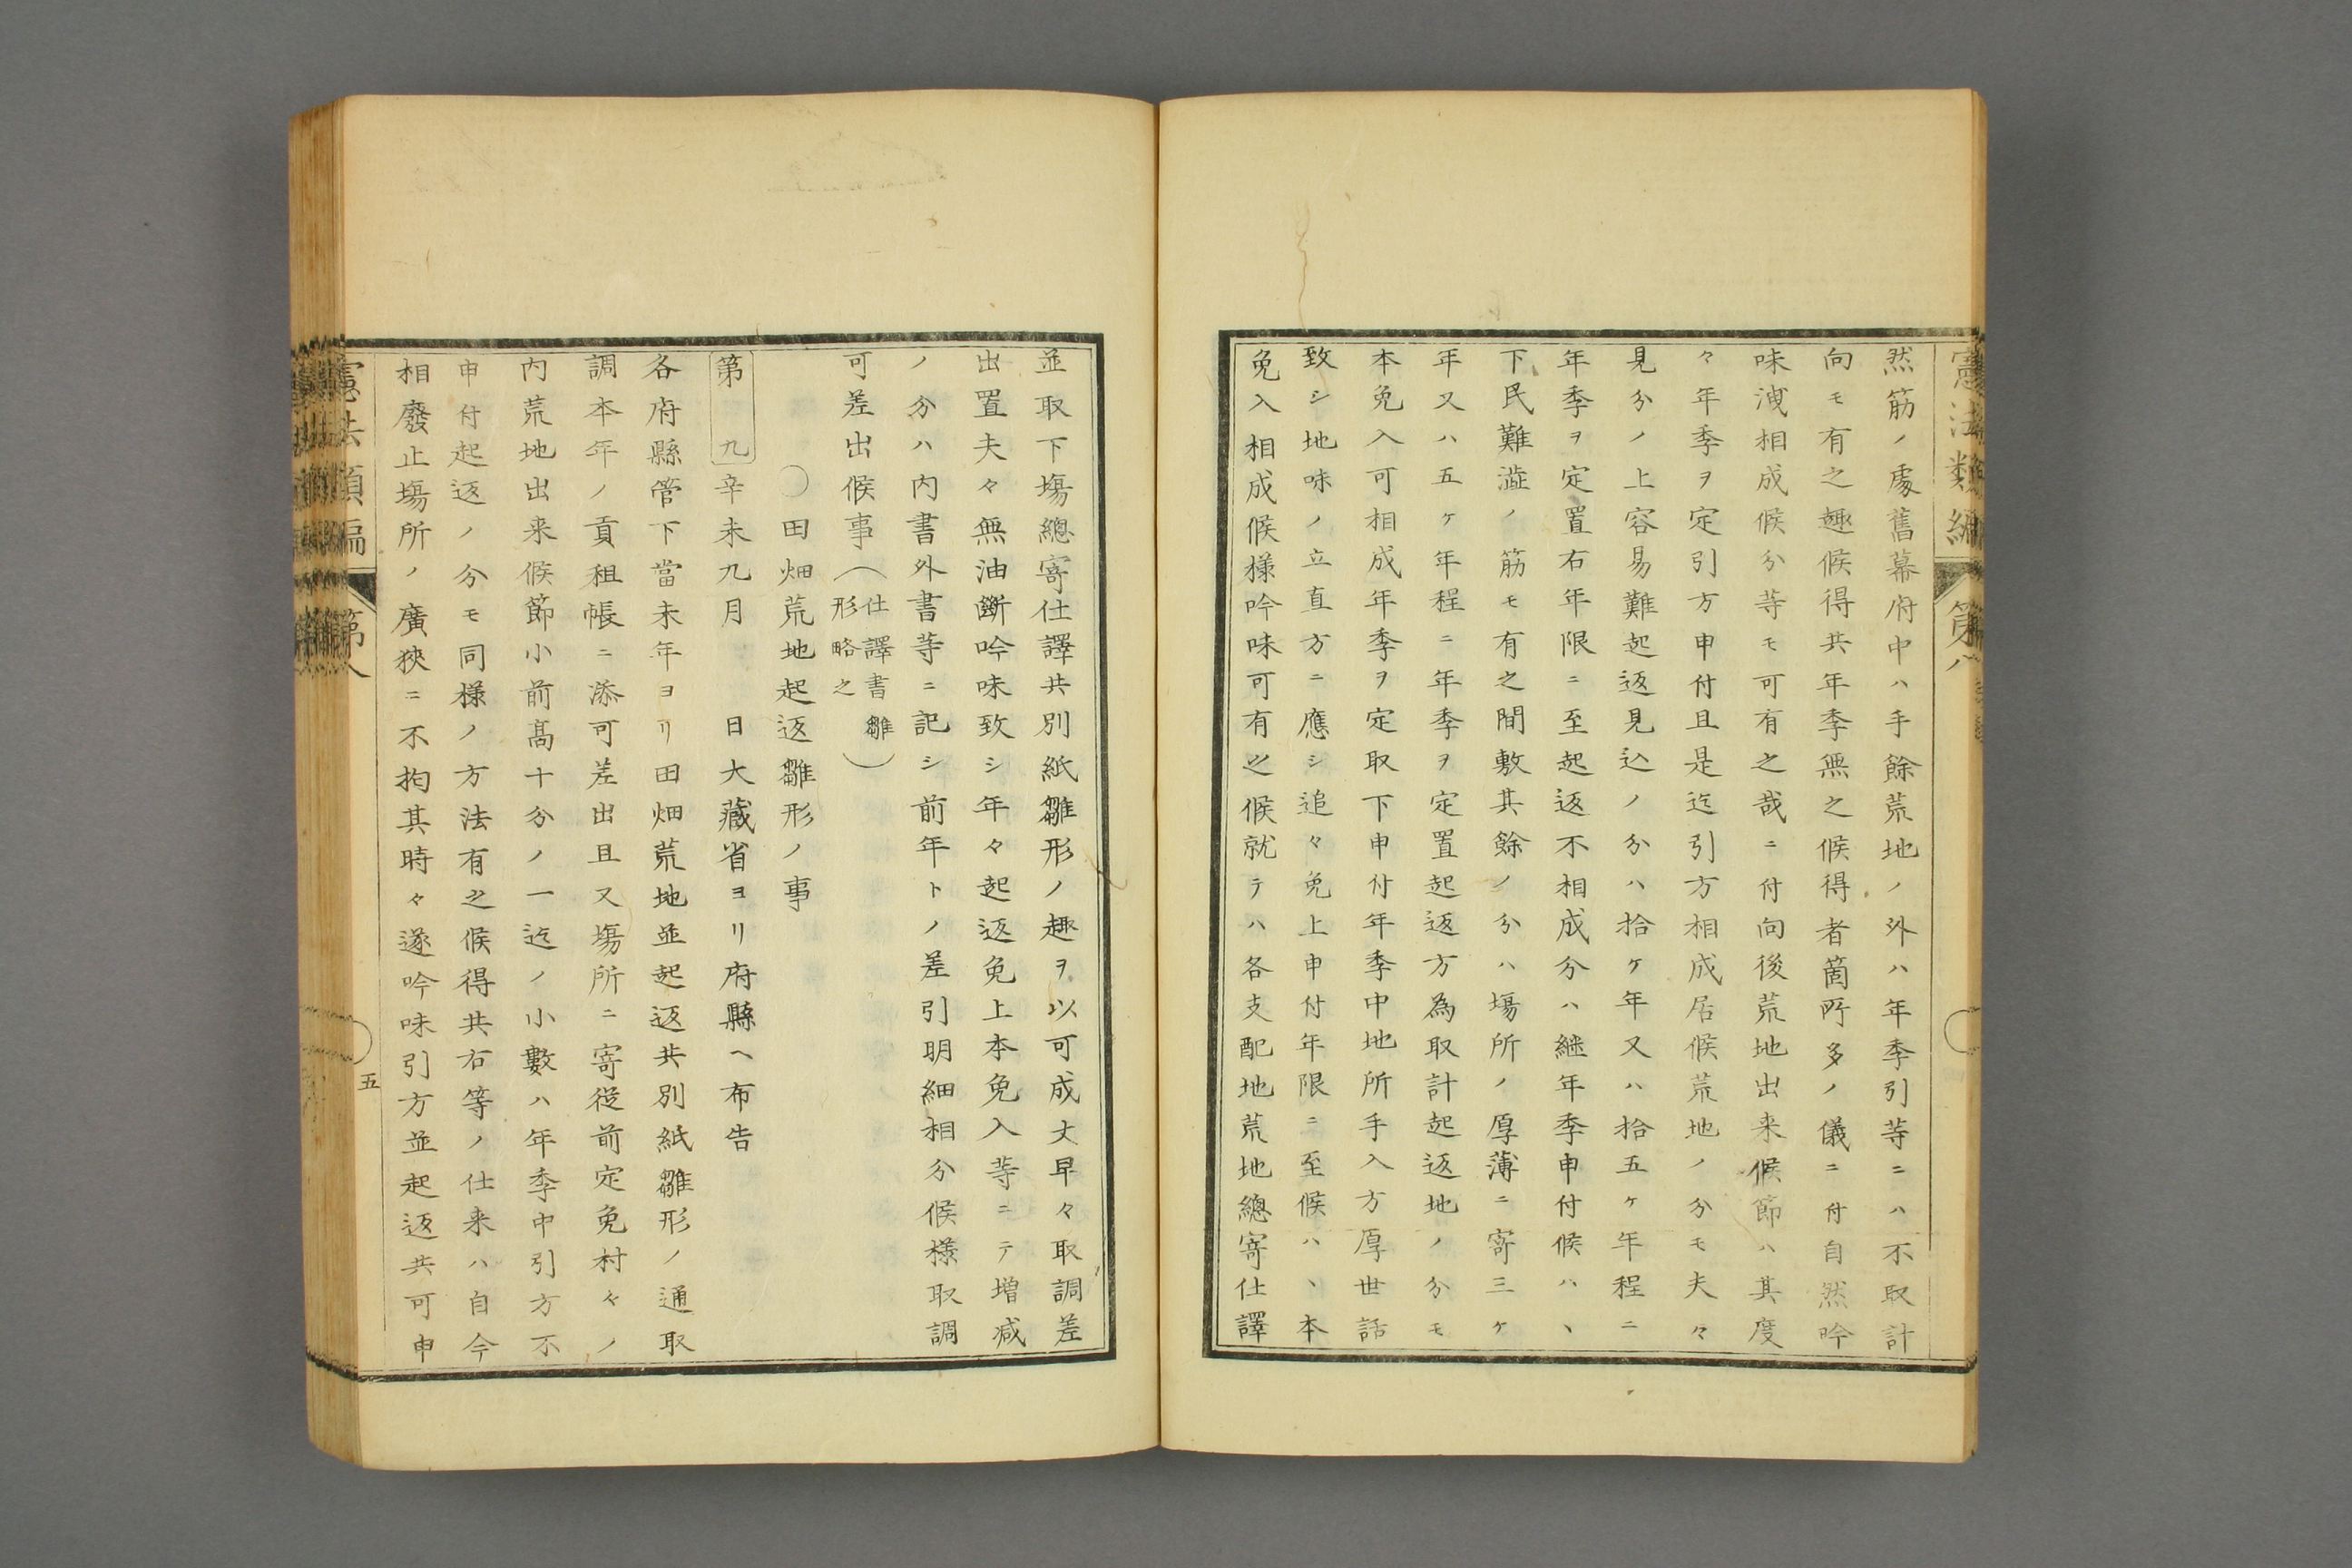 憲法類編 第八
然筋ノ處舊幕府中ハ手餘荒地ノ外ハ年季引等ニハ不取計
向モ有之趣候得共年季無之候得者箇所多ノ儀ニ付自然吟
味洩相成候分等モ可有之哉ニ付向後荒地出来候節ハ其度
々年季ヲ定引方申付且是迄引方相成居候荒地ノ分モ夫々
見分ノ上容易難起返見込ノ分ハ拾ケ年又ハ拾五ケ年程ニ
年季ヲ定置右年限ニ至起返不相成分ハ継年季申付候ハヽ
下民難澁ノ筋モ有之間敷其餘ノ分ハ塲所ノ厚薄ニ寄三ケ
年又ハ五ケ年程ニ年季ヲ定置起返方為取計起返地ノ分モ
本免入可相成年季ヲ定取下申付年季中地所手入方厚世話
致シ地味ノ立直方ニ應シ追々免上申付年限ニ至候ハヽ本
免入相成候様吟味可有之候就テハ各支配地荒地總寄仕譯
並取下塲總寄仕譯共別紙雛形ノ趣ヲ以可成丈早々取調差
出置夫々無油斷吟味致シ年々起返免上本免入等ニテ増減
ノ分ハ内書外書等ニ記シ前年トノ差引明細相分候様取調
可差出候事（仕譯書雛形略之）
〇田畑荒地起返雛形ノ事
第九 辛未九月 日大藏省ヨリ府縣ヘ布告
各府縣管下當未年ヨリ田畑荒地並起返共別紙雛形ノ通取
調本年ノ貢租帳ニ添可差出且又塲所ニ寄従前定免村々ノ
内荒地出来候節小前髙十分ノ一迄ノ小數ハ年季中引方不
申付起返ノ分モ同様ノ方法有之候得共右等ノ仕来ハ自今
相廢止塲所ノ廣狹ニ不拘其時々遂吟味引方並起返共可申
憲法類編 第八
五